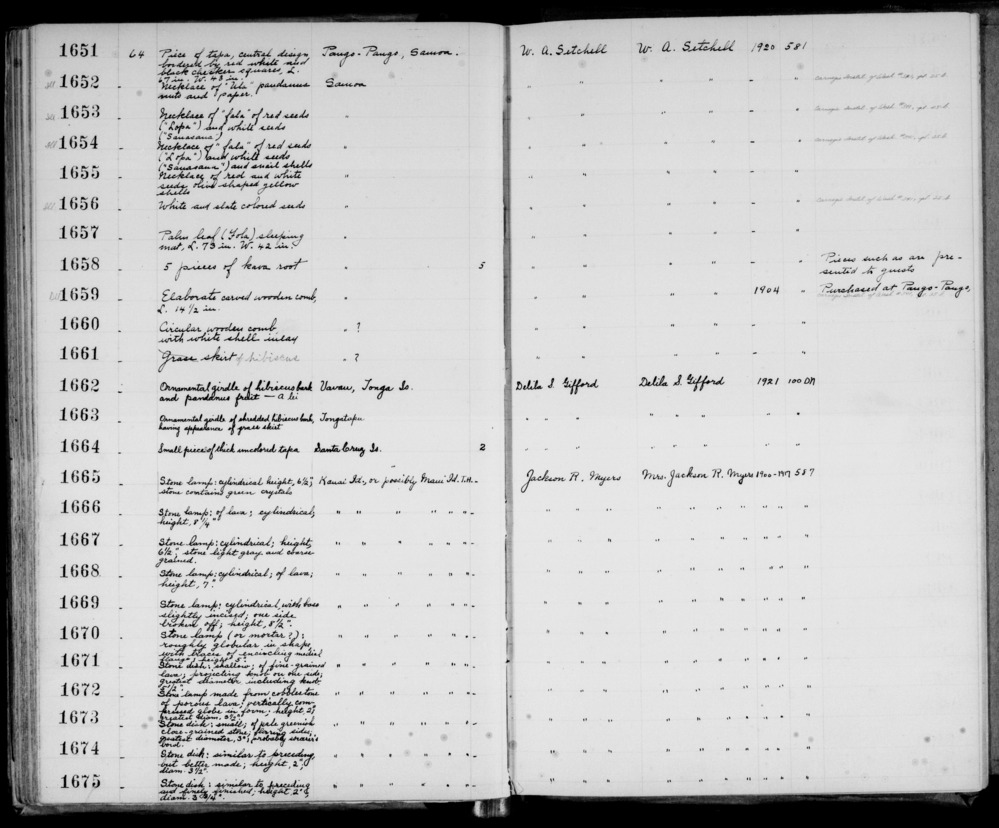 1651 64 Piece of tapa, central design Pango-Pango, Samoa. W. A. Setchell W. A. Setchell 1920 581
bordered by red white and
black checker squares, L.
47 in. W. 43 in.
1652 Necklace of "Ula" pandanus Samoa " " " " "
nuts and paper.
1653 Necklace of "fala" of red seeds " " " " " "
("Lopa") and white seeds
("Sanasana")
1654 Necklace of "fala" of red seeds " " " " " "
("Lopa") and white seeds
("Sanasana") and snail shells
1655 Necklace of red and white " " " " " "
seeds olive shaped yellow
shells
1656 White and slate colored seeds " " " " " "
1657 Palm leaf (Fola) sleeping " " " " " "
mat, L. 73 in. W. 42 in.
1658 5 pieces of kava root " 5 " " " " " Pieces such as are pre-
sented to guests
1659 Elaborate carved wooden comb, " " " " " 1904 " Purchased at Pango-Pango,
L. 14 1/2 in.
1660 Circular wooden comb " ? " " " " " "
with white shell inlay
1661 Grass skirt of hibiscus " ? " " " " " "
1662 Ornamental girdle of hibiscus bark Vavau, Tonga Is. Delila S. Gifford Delila S. Gifford 1921 100DN
and pandanus fruit — a lei
1663 Ornamental girdle of shredded hibiscus bark, Tongatapu " " " " " " " "
having appearance of grass skirt
1664 Small piece of thick uncolored tapa Santa Cruz Is. 2 " " " " " " "
1665 Stone lamp: cylindrical height, 6 1/2; Kauai Id., or possibly Maui Id. T.H. Jackson R. Myers Mrs. Jackson R. Myers 1900-1917 587
stone contains green crystals
1666 Stone lamp: of lava; cylindrical; " " " " " " "
height, 8 1/4"
1667 Stone lamp: cylindrical; height, " " " " " " "
6 1/2"; stone light gray and coarse
grained.
1668 Stone lamp: cylindrical; of lava; " " " " " " "
height, 7".
1669 Stone lamp: cylindrical, with base " " " " " " "
slightly incised; one side
broken off; height, 8 1/2".
1670 Stone lamp (or mortar?): " " " " " " "
roughly globular in shape,
with traces of encircling medial
flange; height 5".
1671 Stone dish, shallow; of fine-grained " " " " " " "
lava; projecting knob on one side;
greatest diameter including knob
1672 Stone lamp made from cobblestone " " " " " " "
of porous lava; vertically com-
pressed globe in form; height, 2";
greatest diam. 3 1/2"
1673 Stone disk: small; of pale greenish " " " " " " "
close-grained stone; flaring sides;
greatest diameter, 3";
1674 Stone disk: similar to preceding, " " " " " " "
but better made; height, 2";
diam. 3 1/2".
1675 Stone disk: similar to preceding " " " " " " "
and finely finished; height 2";
diam. 3 3/4".